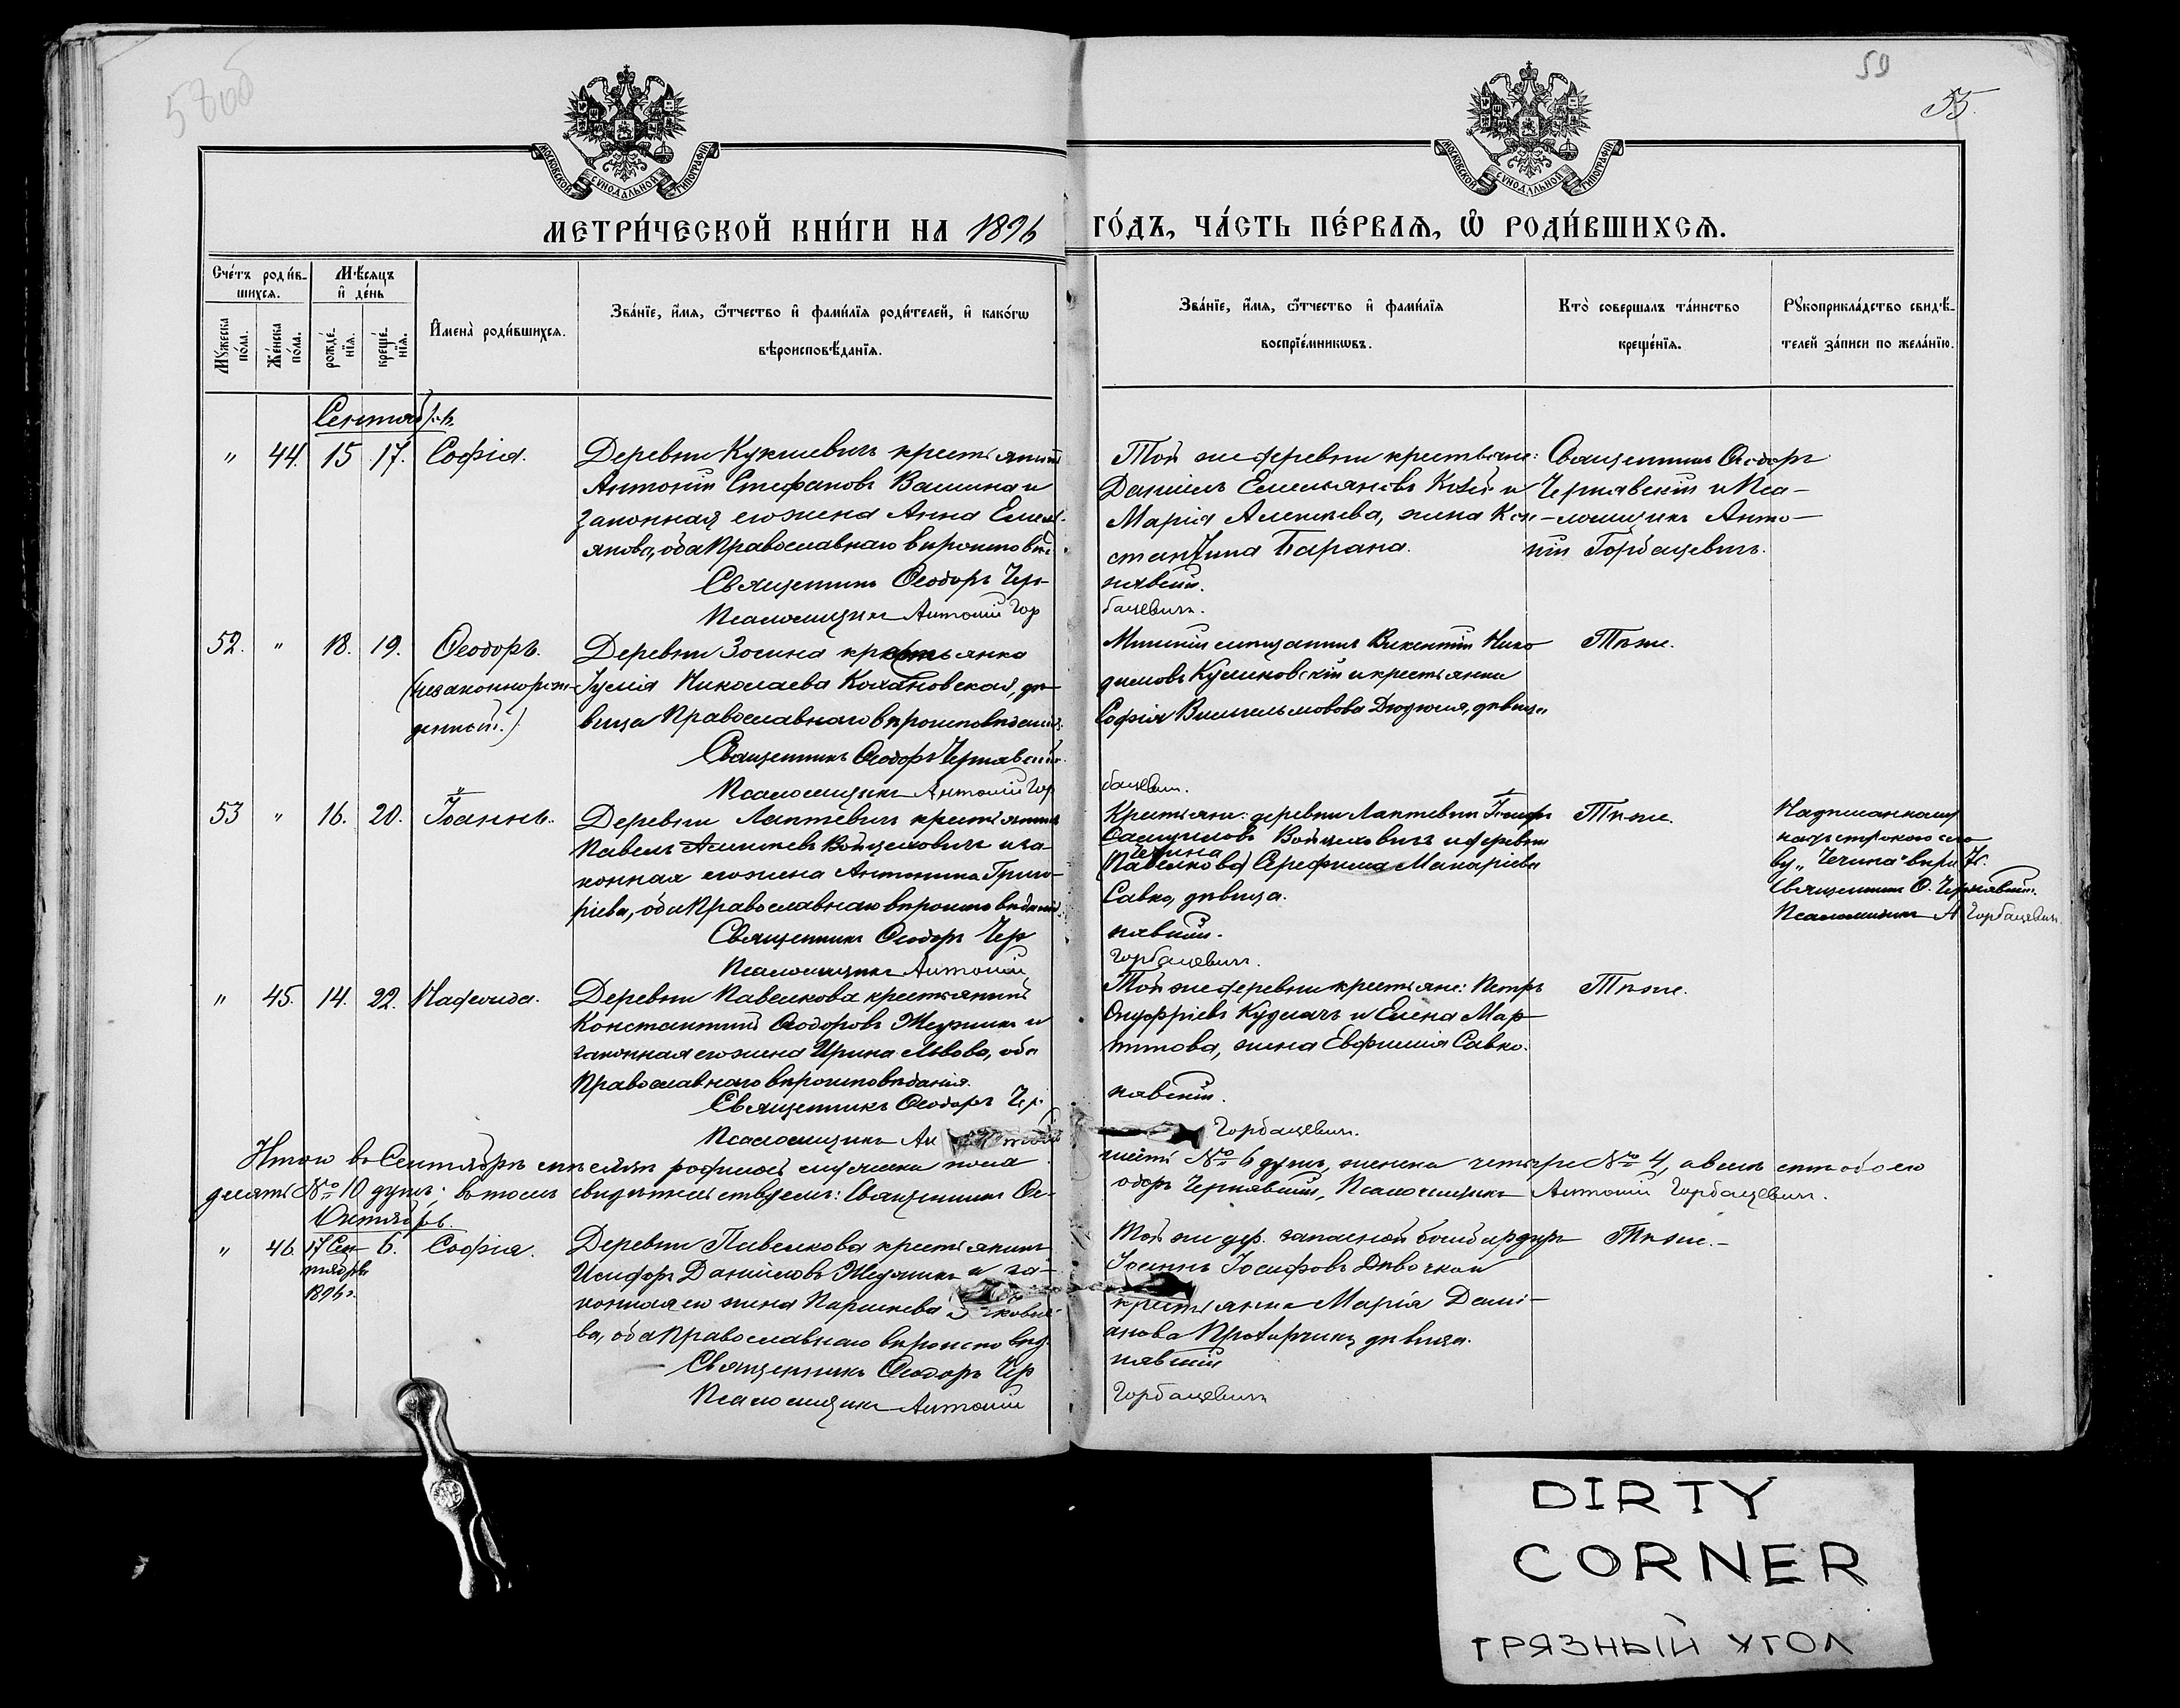 58об
59
55.
МОСКОВСКОЙ СѴНОДАЛЬНОЙ ТИПОГРАФІИ
МОСКОВСКОЙ СѴНОДАЛЬНОЙ ТИПОГРАФІИ
МЕТРИ́ЧЕСКОЙ КНИ́ГИ НА 1896 ГО́ДЪ, ЧА́СТЬ ПЕ́РВАѦ, Ѡ҆ РОДИ́ВШИХСѦ.
Сче́тъ роди́в-
шихсѧ.
Мꙋ́жеска по́ла.
Же́нска по́ла.
Мѣ́сѧцъ и҆ де́нь
рожде́нїѧ.
креще́нїѧ.
И҆мена̀ роди́вшихсѧ.
Зва́нїе, и҆́мѧ, ѻ҆́тчество и҆ фами́лїѧ роди́телей, и҆ како́гѡ
вѣроисповѣ́данїѧ.
Зва́нїе, и҆́мѧ, ѻ҆́тчество и҆ фами́лїѧ
воспрїе́мникѡвъ.
Кто̀ соверша́лъ та́инство
креще́нїѧ.
Рꙋкоприкла́дство свидѣ́-
телей за́писи по жела́нїю.
Сентябрь
" 44. 15 17. Софія.
Деревни Кукшевичъ крестьянинъ
Антоній Стефановъ Вашина и
законная его жена Анна Емель-
янова, оба Православнаго вѣроисповѣд.
Священникъ Ѳеодоръ Чер-
Псаломщикъ Антоній Гор
Той же деревни крестьяне:
Даніилъ Емельяновъ и
Марія Алексѣева, жена Кон-
стантина Барана.
нявскій.
бацевичъ.
Священникъ Ѳеодоръ
Чернявскій и Пса-
ломщикъ Анто-
ній Горбацевичъ.
52. " 18. 19. Ѳеодоръ.
(незаконнорож-
денный.)
Деревни Зосина крестьянка
Іулія Николаева Кохановская, дѣ-
вица Православнаго вѣроисповѣданія.
Священникъ Ѳеодоръ Чернявскій.
Псаломщикъ Антоній Гор
Минскій мѣщанинъ Викентій Нико
димовъ Куликовскій и крестьянка
Софія Вильгельмовова Дюдюля, дѣвица
бацевичъ.
Тѣже.
53 " 16. 20. Іоаннъ.
Деревни Лаптевичъ крестьянинъ
Павелъ Алексѣевъ Войцеховичъ и за-
конная его жена Антонина Григо-
ріева, оба Православнаго вѣроисповѣданія.
Священникъ Ѳеодоръ Чер
Псаломщикъ Антоній
Крестьяне: деревни Лаптевичъ Іосифъ
Самуиловъ Войцеховичъ и деревни
Чечина
Павелкова Серафима Макаріева
Савко, дѣвица.
нявскій.
Горбацевичъ.
Тѣже.
Надписанному
надъ строкою сло
ву „Чечина" вѣрить.
Священникъ Ѳ. Чернявскій.
Псаломщикъ А Горбацевичъ.
" 45. 14. 22. Нафеида.
Деревни Павелкова крестьянинъ
Константинъ Ѳеодоровъ и
законная его жена Ирина Львова, оба
Православнаго вѣроисповѣданія.
Священникъ Ѳеодоръ Чер
Псаломщикъ Антоній
Той же деревни крестьяне: Петръ
Онуфріевъ Кудлачъ и Елена Мар-
тинова, жена Евфимія Савко.
нявскій.
Горбацевичъ.
Тѣже.
Итого въ Сентябрѣ мѣсяцѣ родилось мужеска пола шесть № 6 душъ, женска четыре № 4, а всего обоего
десять № 10 душъ; въ томъ свидѣтельствуемъ: Священникъ Ѳе- одоръ Чернявскій, Псаломщикъ Антоній Горбацевичъ.
Октябрь.
" 46. 17 Сен- 6. Софія.
тября
1896 г.
Деревни Павелкова крестьянинъ
Іосифъ Даніиловъ и за-
конная его жена Параскева
ва, оба Православнаго вѣроисповѣд.
Священникъ Ѳеодоръ Чер
Псаломщикъ Антоній
Той же дер. запасной бомбардиръ
Іоаннъ Іосифовъ Дѣвочко и
крестьянка Марія Дамі-
анова дѣвица.
нявскій
Горбацевичъ
Тѣже.
DIRTY
CORNER
ГРЯЗНЫЙ УГОЛ